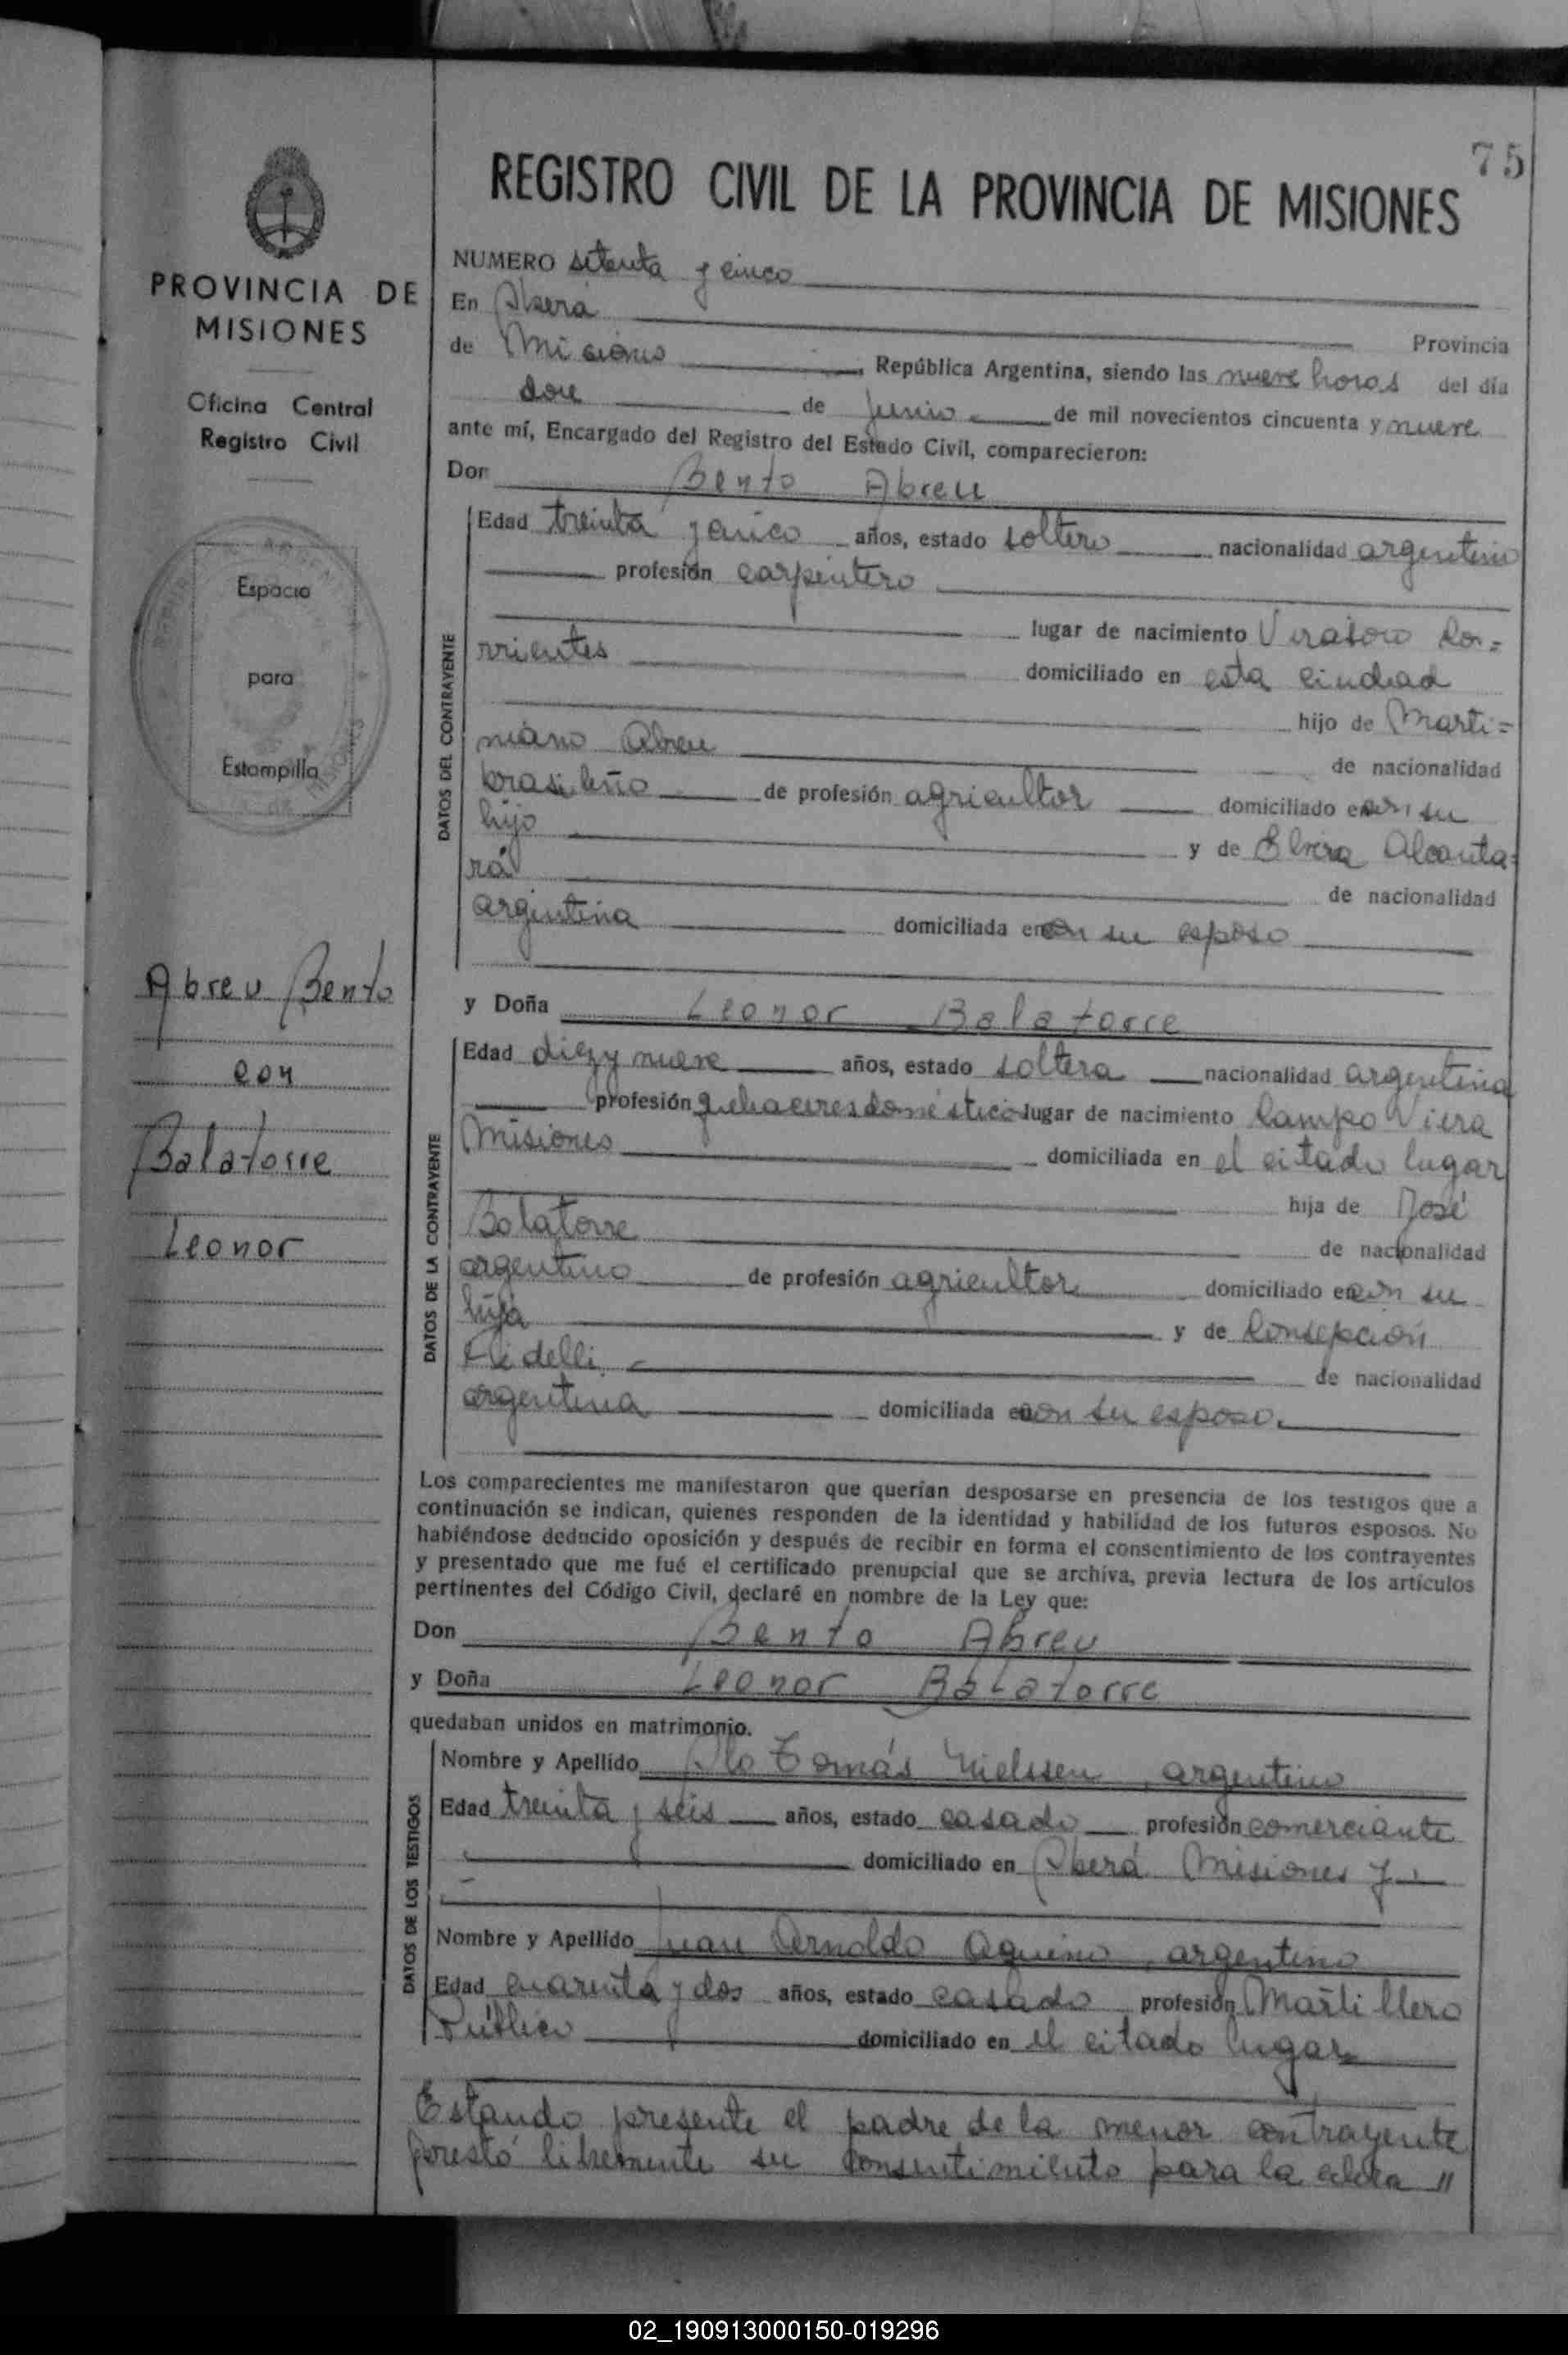 75
REGISTRO CIVIL DE LA PROVINCIA DE MISIONES
PROVINCIA DE
MISIONES
Oficina Central
Registro Civil
Espacio
para
Estampilla
Abreu Bento
con
Balatorre
Leonor
NUMERO setenta y cinco
En Oberá
Provincia
de Misiones, República Argentina, siendo las nueve horas del día
doce de Junio de mil novecientos cincuenta y nueve
ante mí, Encargado del Registro del Estado Civil, comparecieron:
Don Bento Abreu
DATOS DEL CONTRAYENTE
Edad treinta y cinco años, estado soltero nacionalidad argentino
profesión carpintero
lugar de nacimiento Virasoro Co=
rrientes domiciliado en esta ciudad
hijo de Marti=
niano Abreu de nacionalidad
brasileño de profesión agricultor domiciliado en con su
hijo y de Elvira Alcanta=
rá de nacionalidad
argentina domiciliada en con su esposo
y Doña Leonor Balatorre
DATOS DE LA CONTRAYENTE
Edad diez y nueve años, estado soltera nacionalidad argentina
profesión quehaceres doméstico lugar de nacimiento Campo Viera
Misiones domiciliada en el citado lugar
hija de José
Balatorre de nacionalidad
argentino de profesión agricultor domiciliado en con su
hija y de Consepción
de nacionalidad
argentina domiciliada en con su esposo.
Los comparecientes me manifestaron que querían desposarse en presencia de los testigos que a
continuación se indican, quienes responden de la identidad y habilidad de los futuros esposos. No
habiéndose deducido oposición y después de recibir en forma el consentimiento de los contrayentes
y presentado que me fué el certificado prenupcial que se archiva, previa lectura de los artículos
pertinentes del Código Civil, declaré en nombre de la Ley que:
Don Bento Abreu
y Doña Leonor Balatorre
quedaban unidos en matrimonio.
DATOS DE LOS TESTIGOS
Nombre y Apellido Tomás Nielssen, argentino
Edad treinta y seis años, estado casado profesión comerciante
domiciliado en Oberá Misiones y
Nombre y Apellido Juan Arnoldo Aquino, argentino
Edad cuarenta y dos años, estado casado profesión Martillero
Público domiciliado en el citado lugar
Estando presente el padre de la menor contrayente
prestó libremente su consentimiento para la celebra "
02_190913000150-019296